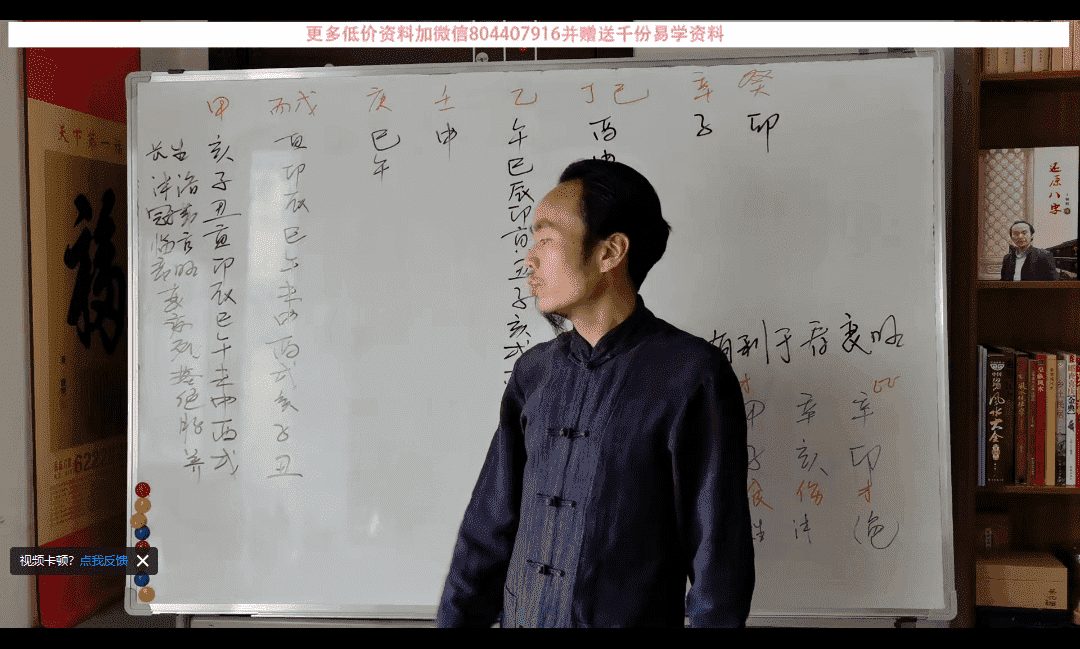 更多低价资料加微信804407916并赠送千份易学资料
甲 丙戊 庚 壬 乙 丁己 辛 癸
长生
沐浴
冠带
临官
帝旺
衰
病
死
墓
绝
胎
养
亥子丑寅卯辰巳午未申酉戌
寅卯辰巳午未申酉戌亥子丑
巳午
申
午巳辰卯寅丑子亥戌
酉申
子
卯
有利于看衰旺
才 比
甲 辛 辛
子 亥 卯
食 伤 才
沐 绝
天下第一福
福
还原八字
风水大全
视频卡顿？点我反馈